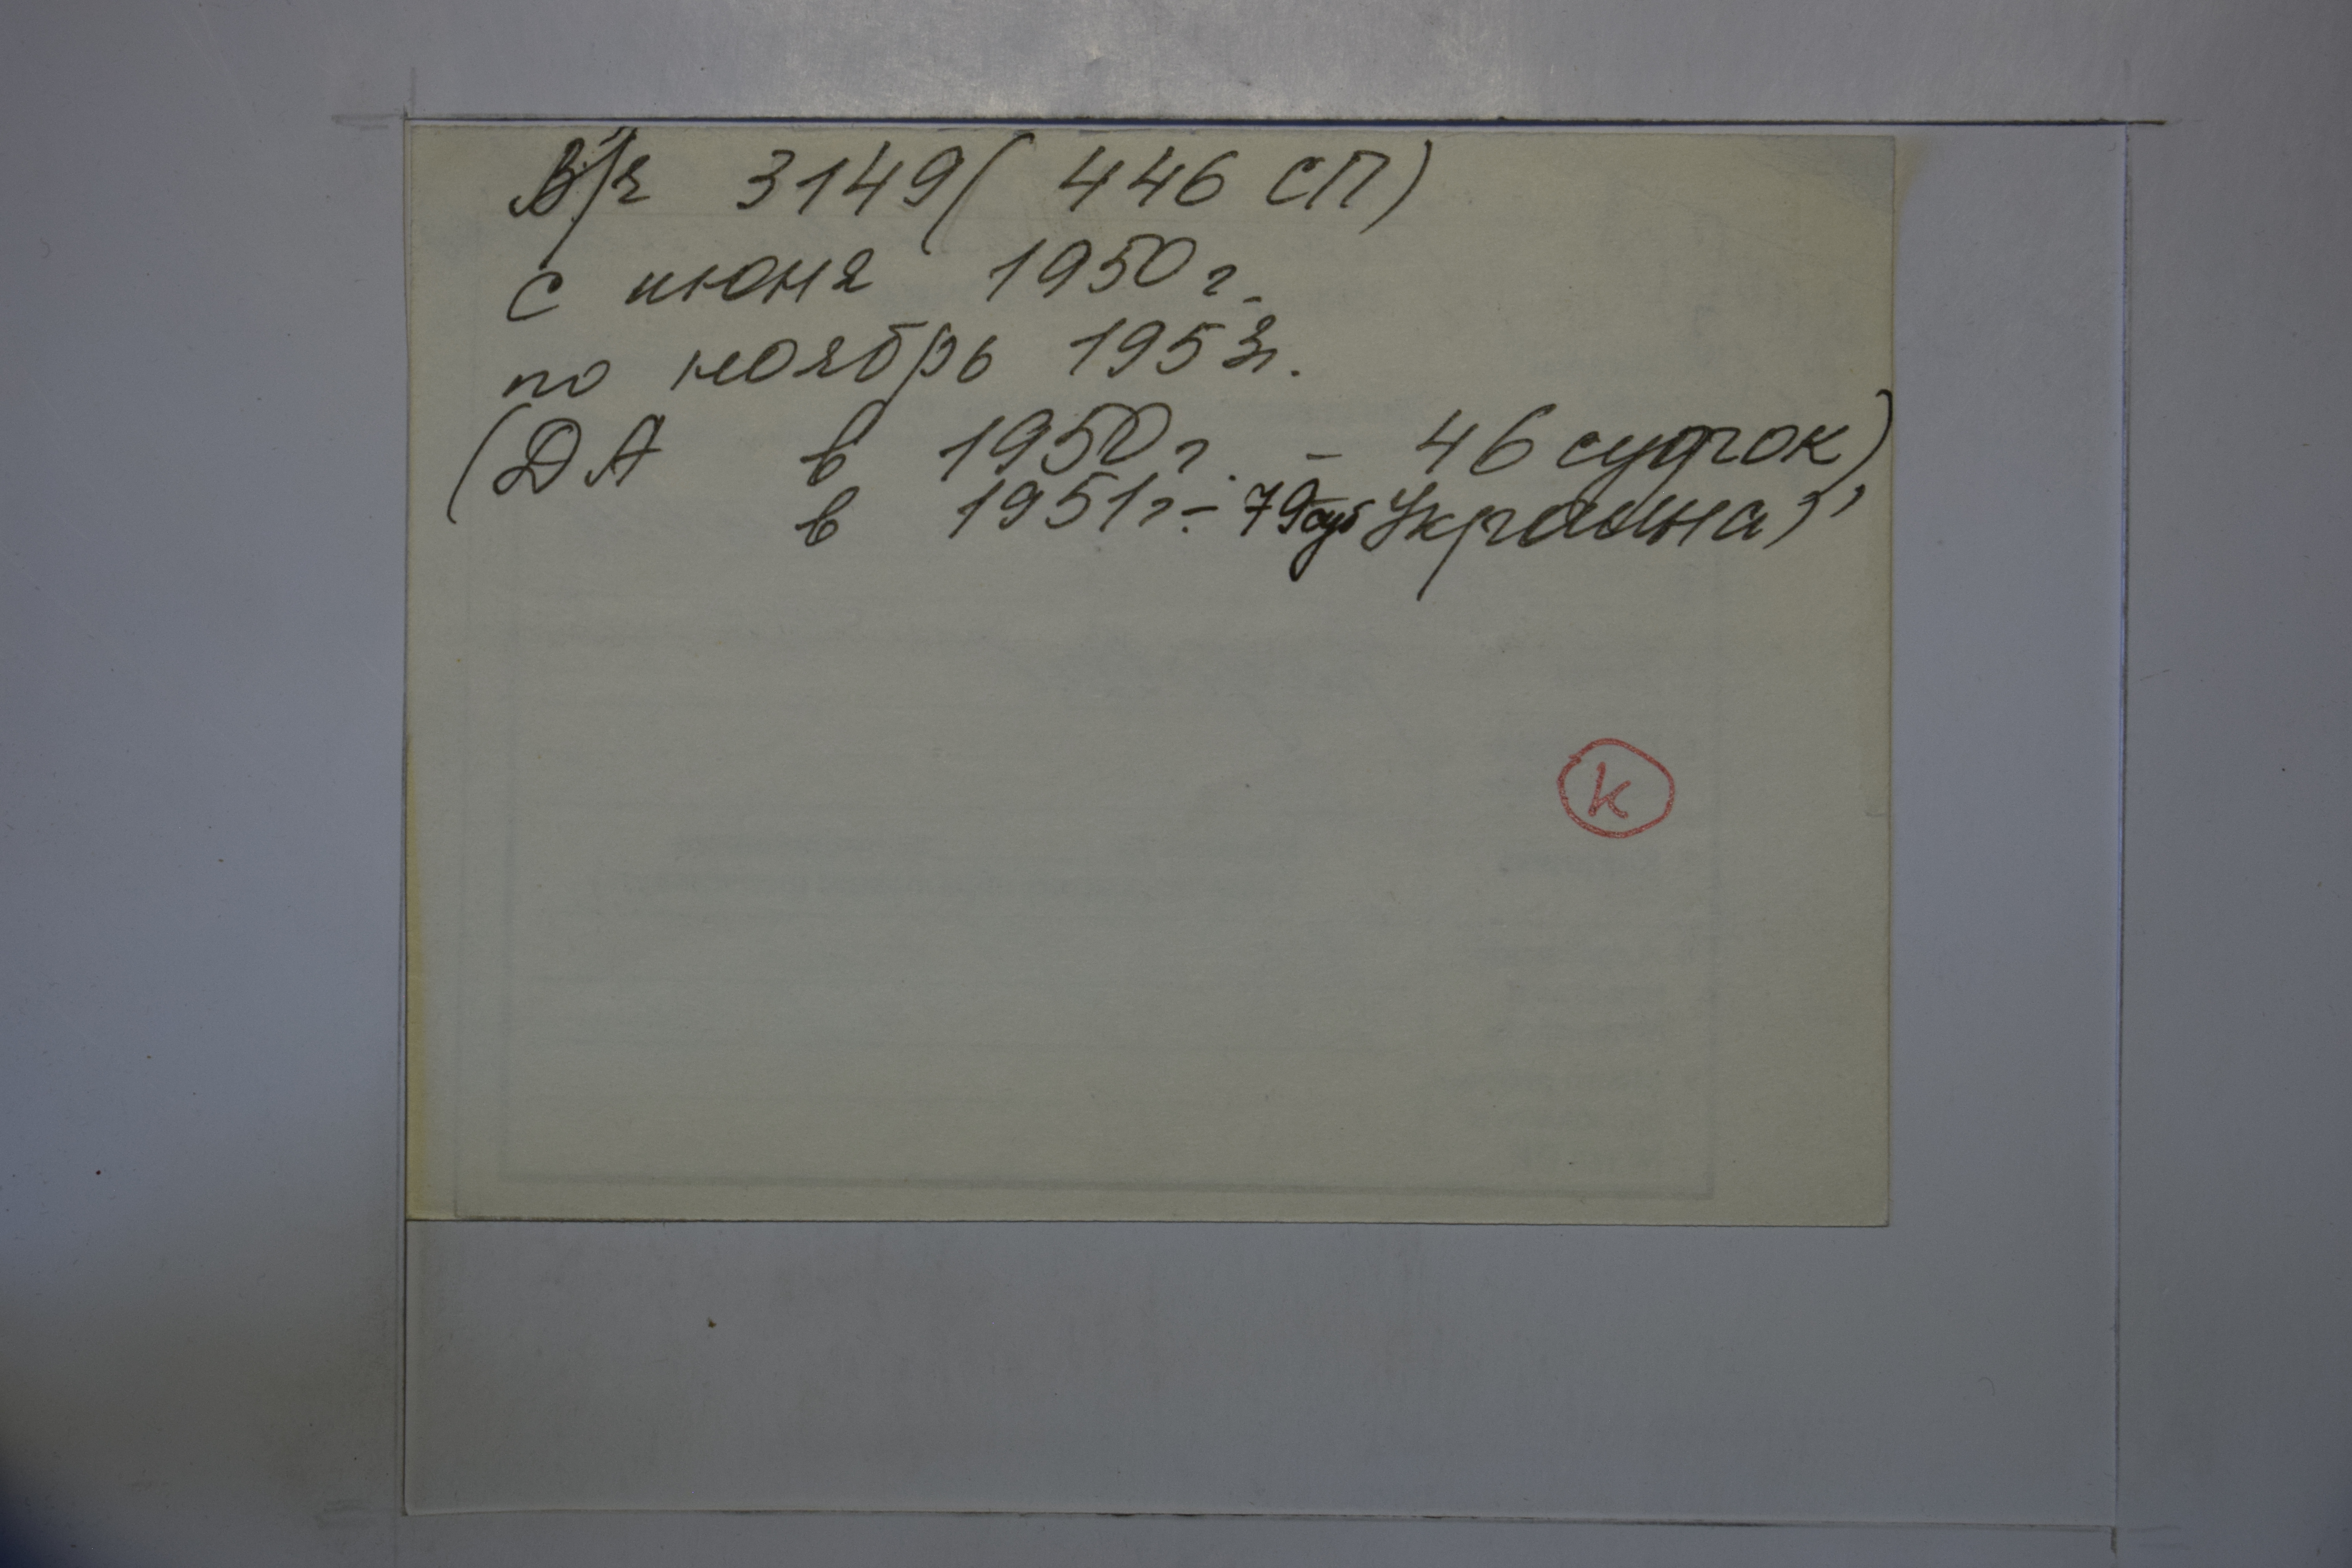 В/ч 3149 (446 СП)
с июня 1950 г.
по ноябрь 1953г.
(ДА в 1950 г. - 46 суток)
в 1951 г. - 79 сут Украина)
К